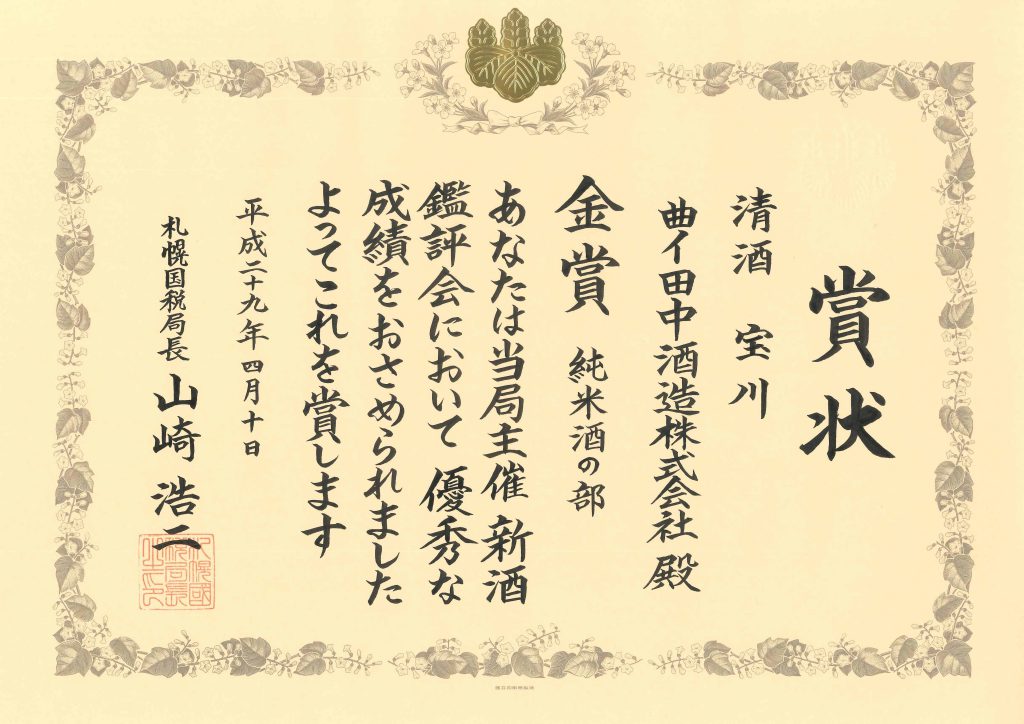 賞状
清酒 宝川
曲イ田中酒造株式会社 殿
金賞 純米酒の部
あなたは当局主催 新酒
鑑評会において 優秀な
成績をおさめられました
よってこれを賞します
平成二十九年四月十日
札幌国税局長 山崎 浩二
札幌國税局長之印